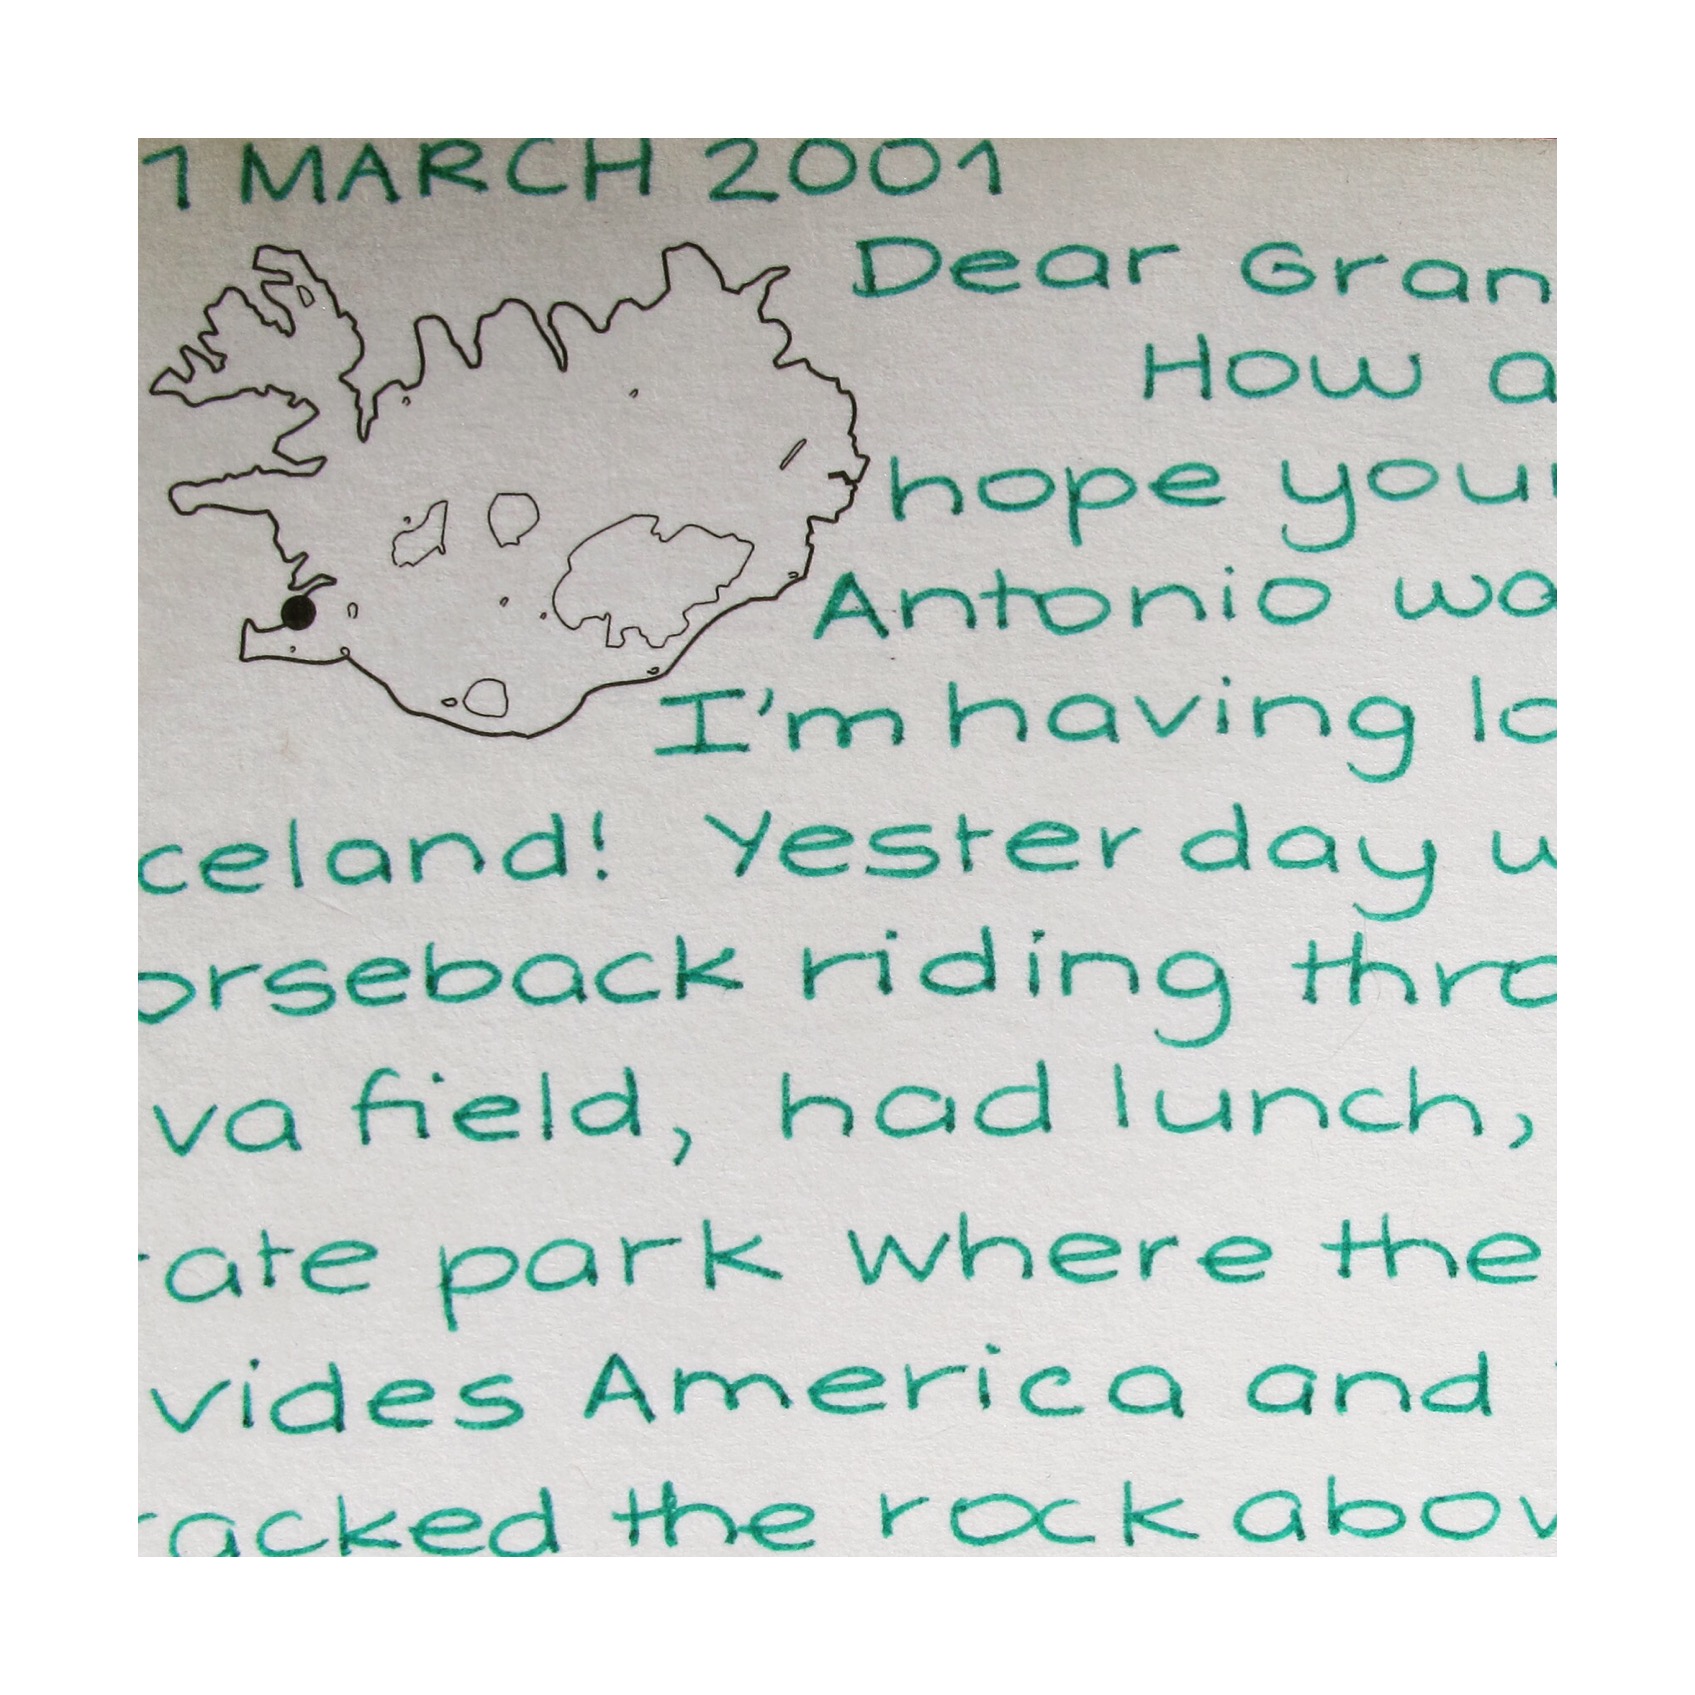 1 MARCH 2001
Dear Gran
How a
hope your
Antonio wa
I'm having lo
celand! Yesterday w
orseback riding thro
va field, had lunch,
ate park where the
vides America and
racked the rock abov